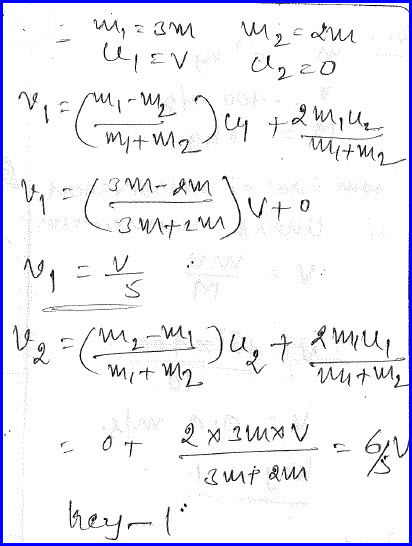 = m₁ = 3m m₂ = 2m
u₁ = v u₂ = 0
v₁ = (m₁ - m₂ / m₁ + m₂) u₁ + 2m₁u₂ / m₁ + m₂
v₁ = (3m - 2m / 3m + 2m) v + 0
v₁ = v / 5
v₂ = (m₂ - m₁ / m₁ + m₂) u₂ + 2m₁u₁ / m₁ + m₂
= 0 + 2 × 3m × v / 3m + 2m = 6/5 v
key - 1